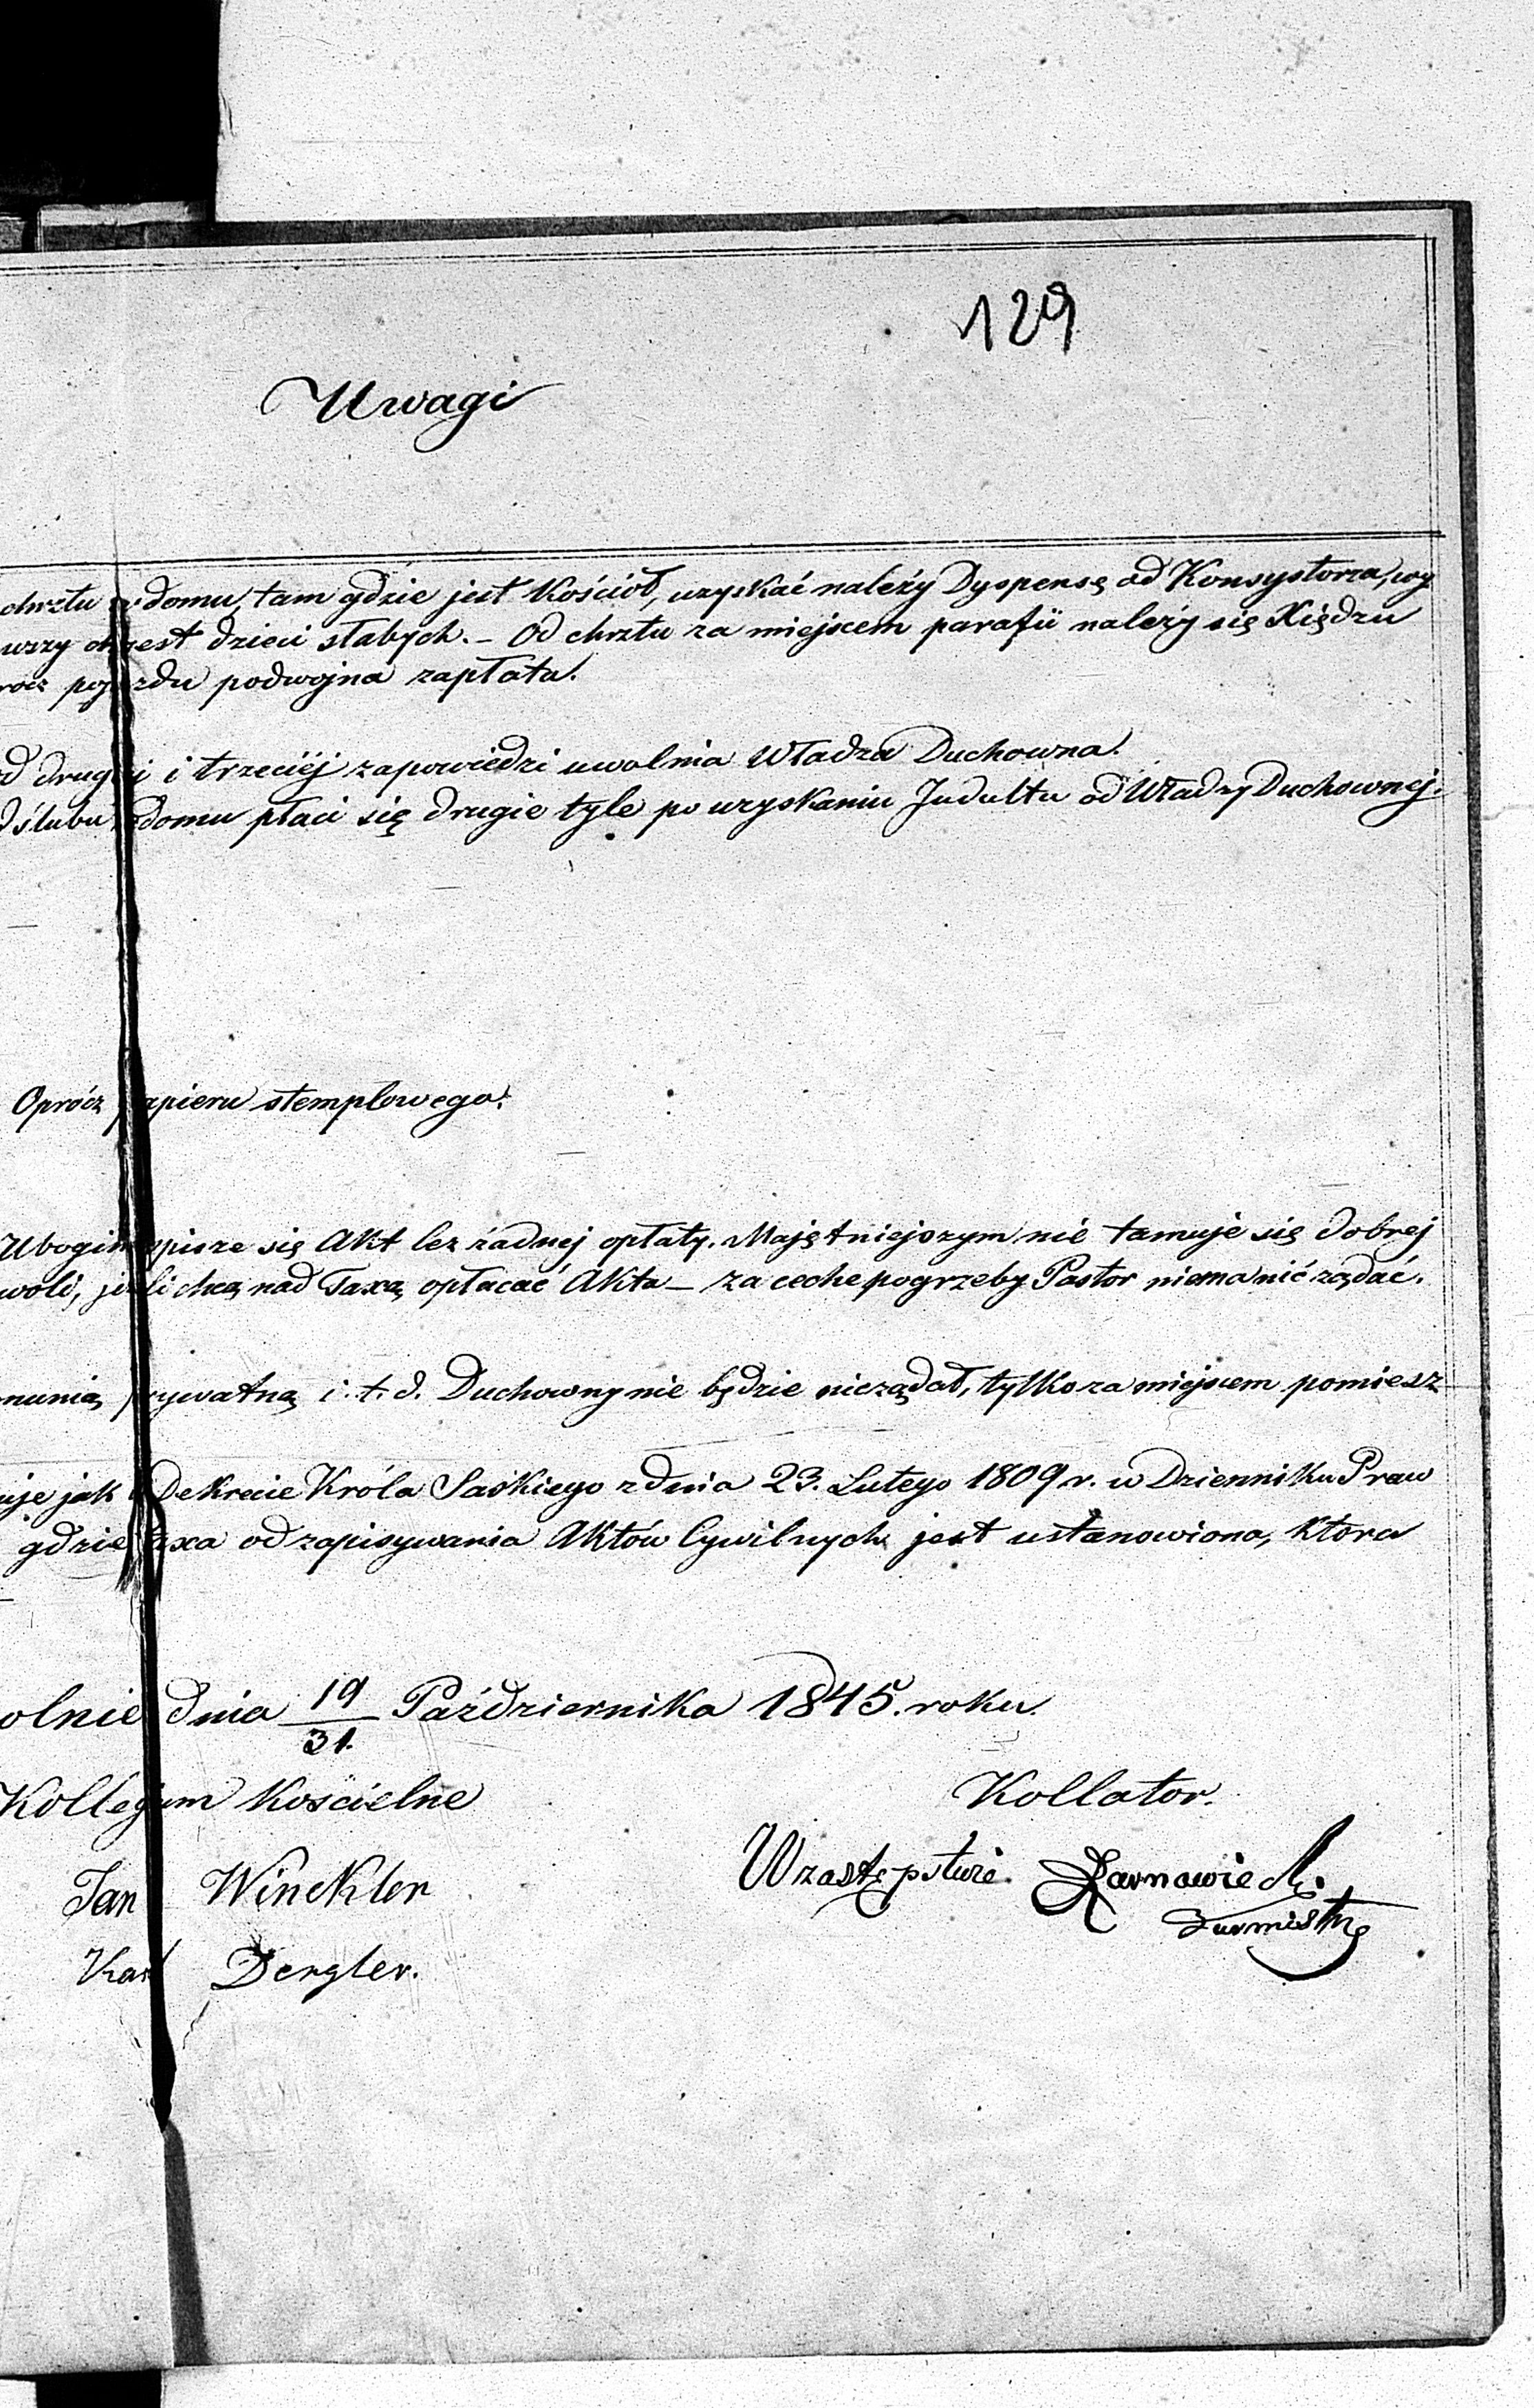 129
Uwagi
chrztu w domu, tam gdzie jest Kościoł, uzyskać należy Dyspensę od Konsystorza, wy
uszy chrzest dzieci słabych. – Od chrztu za miejscem parafii należy się Xiędzu
rocz pojazdu podwojna zapłata.
d drugiej i trzeciéj zapowiedzi uwolnia Władza Duchowna.
d ślubu w domu płaci się drugie tyle po uzyskaniu Jndultu od Władzy Duchownej.
Oprócz papieru stemplowego.
Ubogim spisze się Akt bez żadnej opłaty. Majętniejszym nie tamuje się dobrej
woli, jeśli chcą nad Taxą opłacać Akta – za ceche pogrzeby Pastor niema nić żądać.
munią prywatną i. t. d. Duchowny nie będzie nic żądał, tylko za miejscem pomiesz
uje jak w Dekrecie Króla Saskiego z dnia 23. Lutego 1809 r. w Dzienniku Praw
gdzie taxa od zapisywania Aktów Cywilnych jest ustanowiona, Ktora
olnie dnia 19/31. Października 1845. roku.
Kollegium Kościelne Kollator.
Jan Winckler W zastępstwie Żarnawiecki
Burmistrz
Karl Dengler.